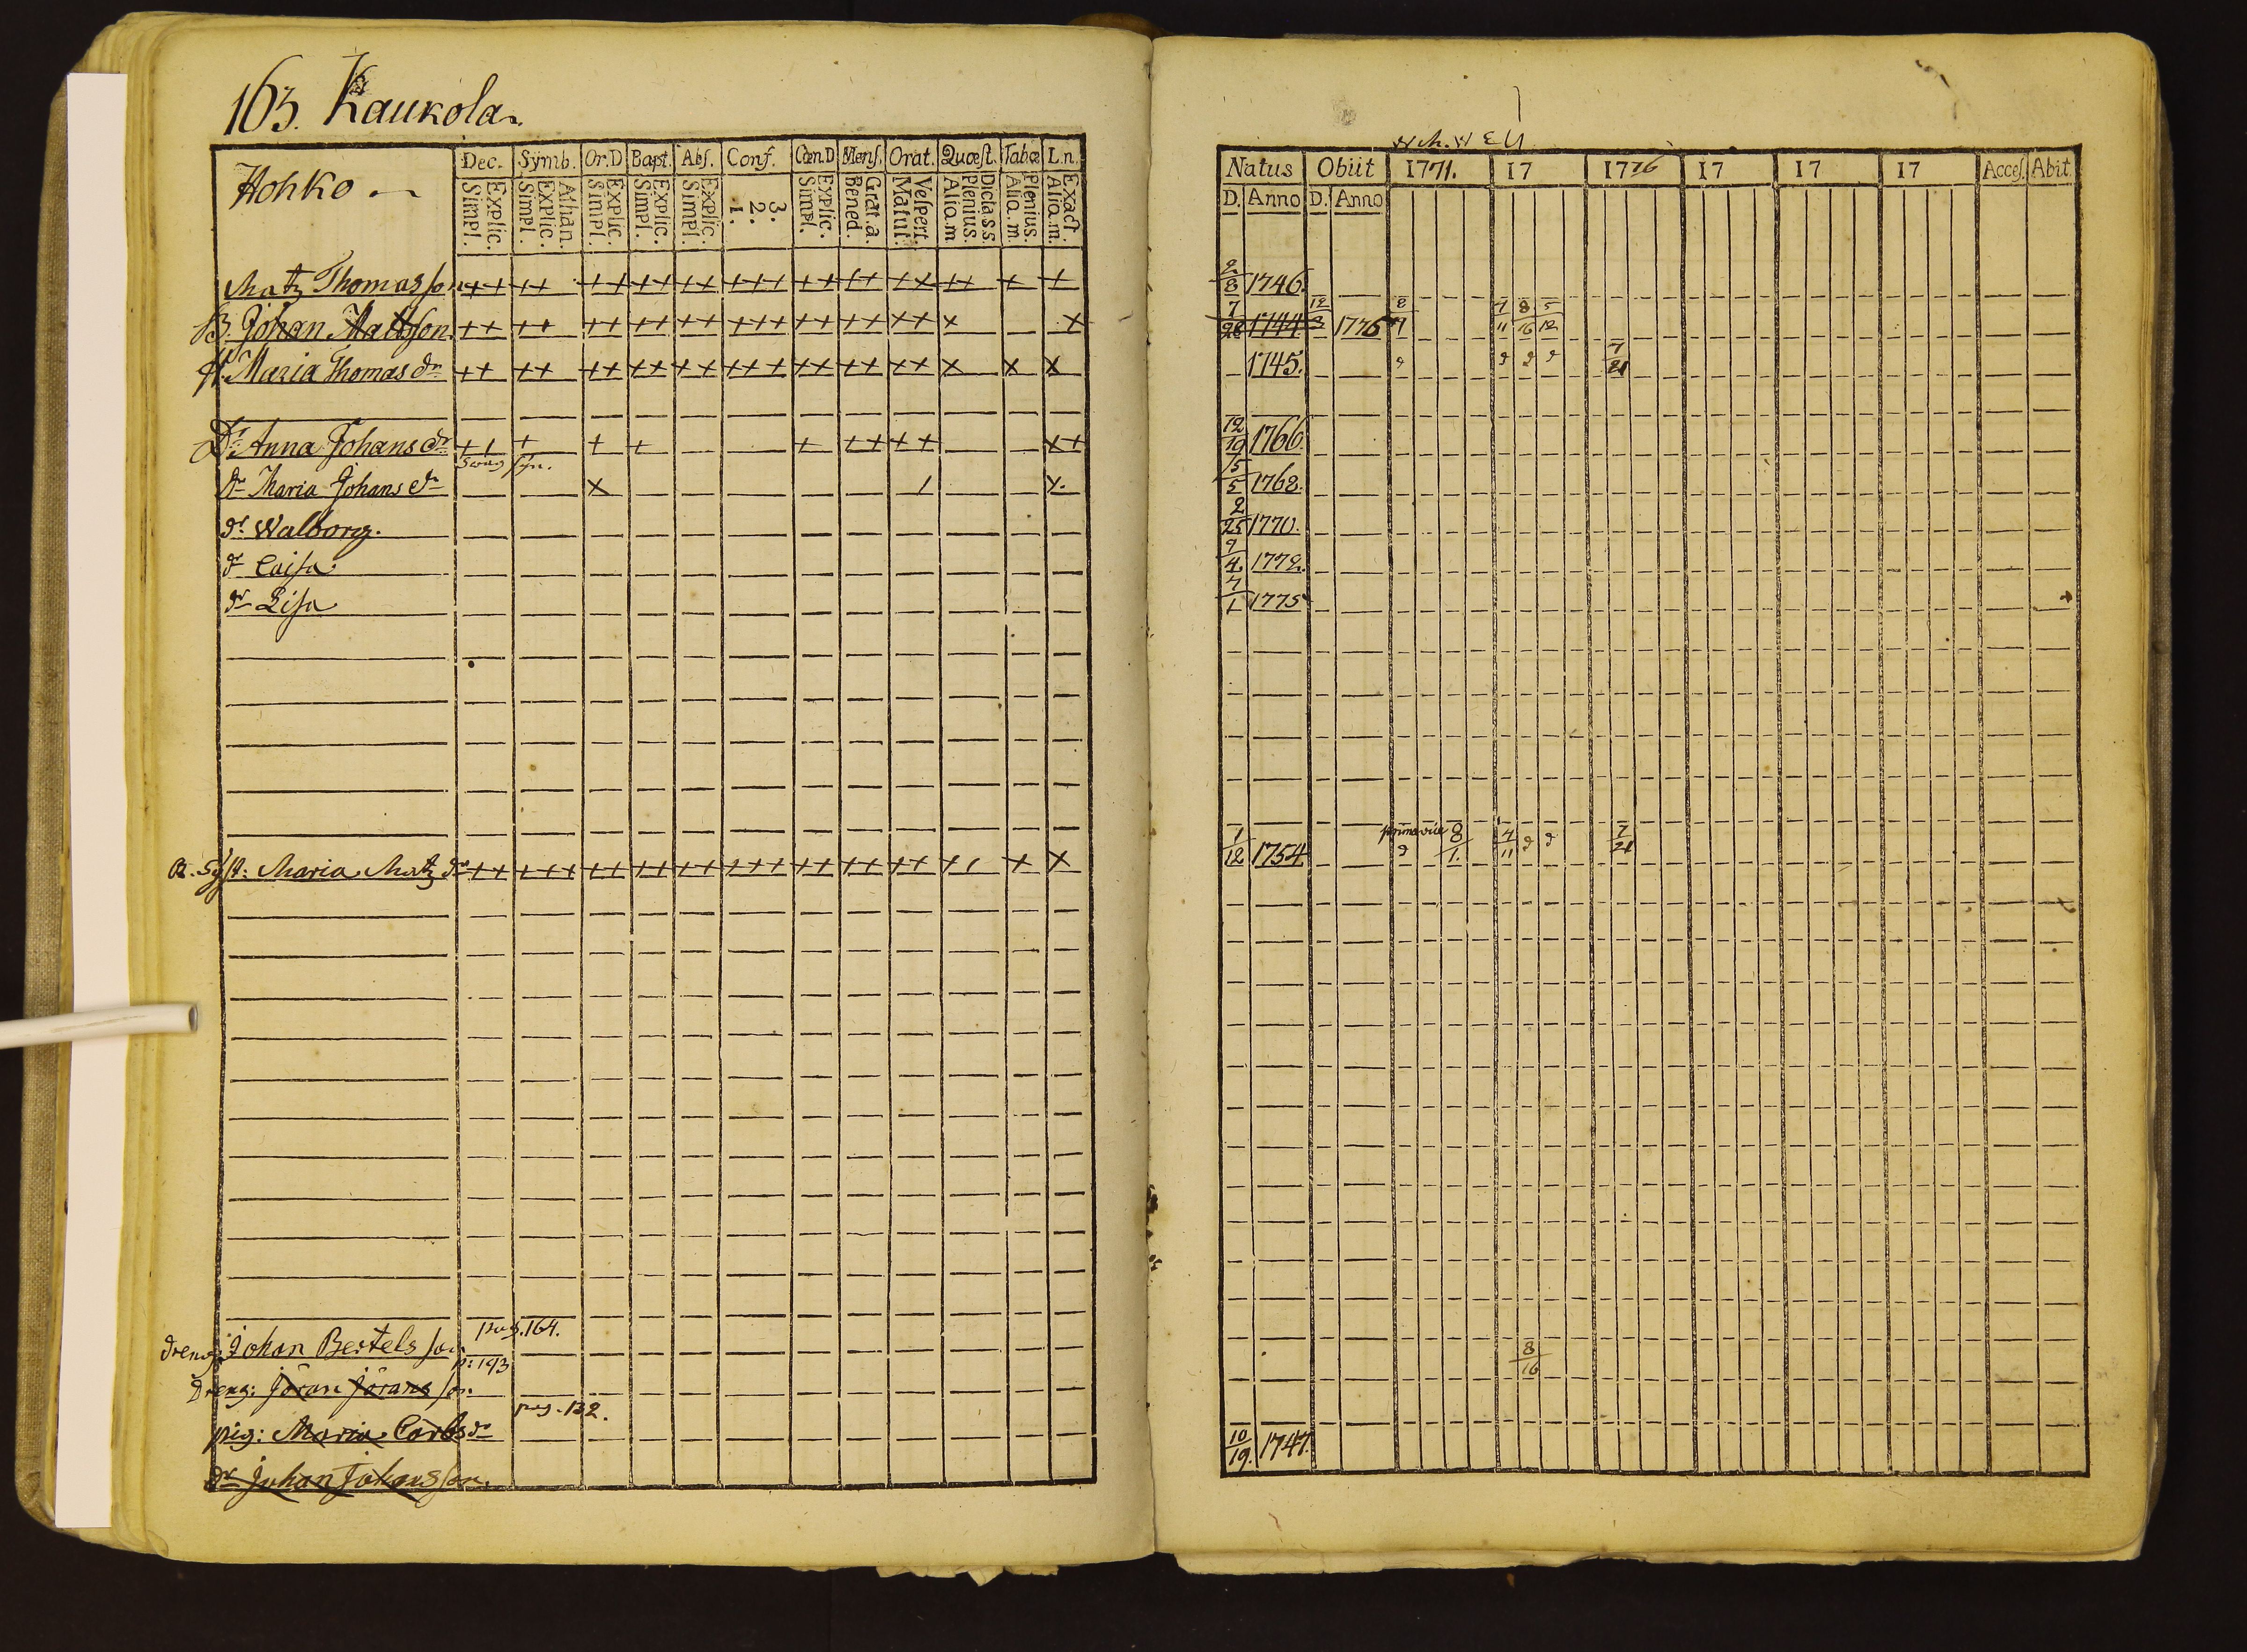 163. Kaukola.
Hohko
Dec. Symb. Or.D Bapt. Abs. Conf. Cœn.D Mens. Orat. Quæst. Tabœ L.n.
Explic. Simpl. Athan. Explic. Simpl. Explic. Simpl. Explic. Simpl. Explic. Simpl. 3. 2. 1. Explic. Simpl. Grat.a. Bened. Vespert. Matut. Dicta.s.s Plenius. Alio.m Plenius. Alio.m. Exact. Alio.m.
Matz Thomasson ++ ++ ++ ++ ++ +++ ++ ++ ++ ++ + +
B. Johan Mattsson ++ ++ ++ ++ ++ +++ ++ ++ ++ x x
H. Maria Thomas dr ++ ++ ++ ++ ++ +++ ++ ++ ++ x x x
Dr. Anna Johans dr ++ + + + + ++ ++ x+
Swag syn.
dr Maria Johans dr x / x.
dr. Walborg.
dr Caisa.
dr Lisa
Syst: Maria Matz dr ++ +++ ++ ++ ++ +++ ++ ++ ++ ++ + x
pag. 164.
dreng Johan Bertelsson
p: 193
Dreng: Jöran Jöransson.
pag. 132.
pig: Maria Carls dr
dr Johan Johansson.
Natus Obiit 1771. 17 1776 17 17 17 Acces. Abit.
D. Anno D. Anno
2/8 1746.
7/28 1744 12/3 1775 8/9 4/11 8/16 5/12
1745. 7/21
12/19 1766.
5/5 1768.
2/25 1770.
9/4. 1772.
7/1 1775
1/12 1754 prima vice 8/1. 4/11 7/21
8/16
10/19. 1747.